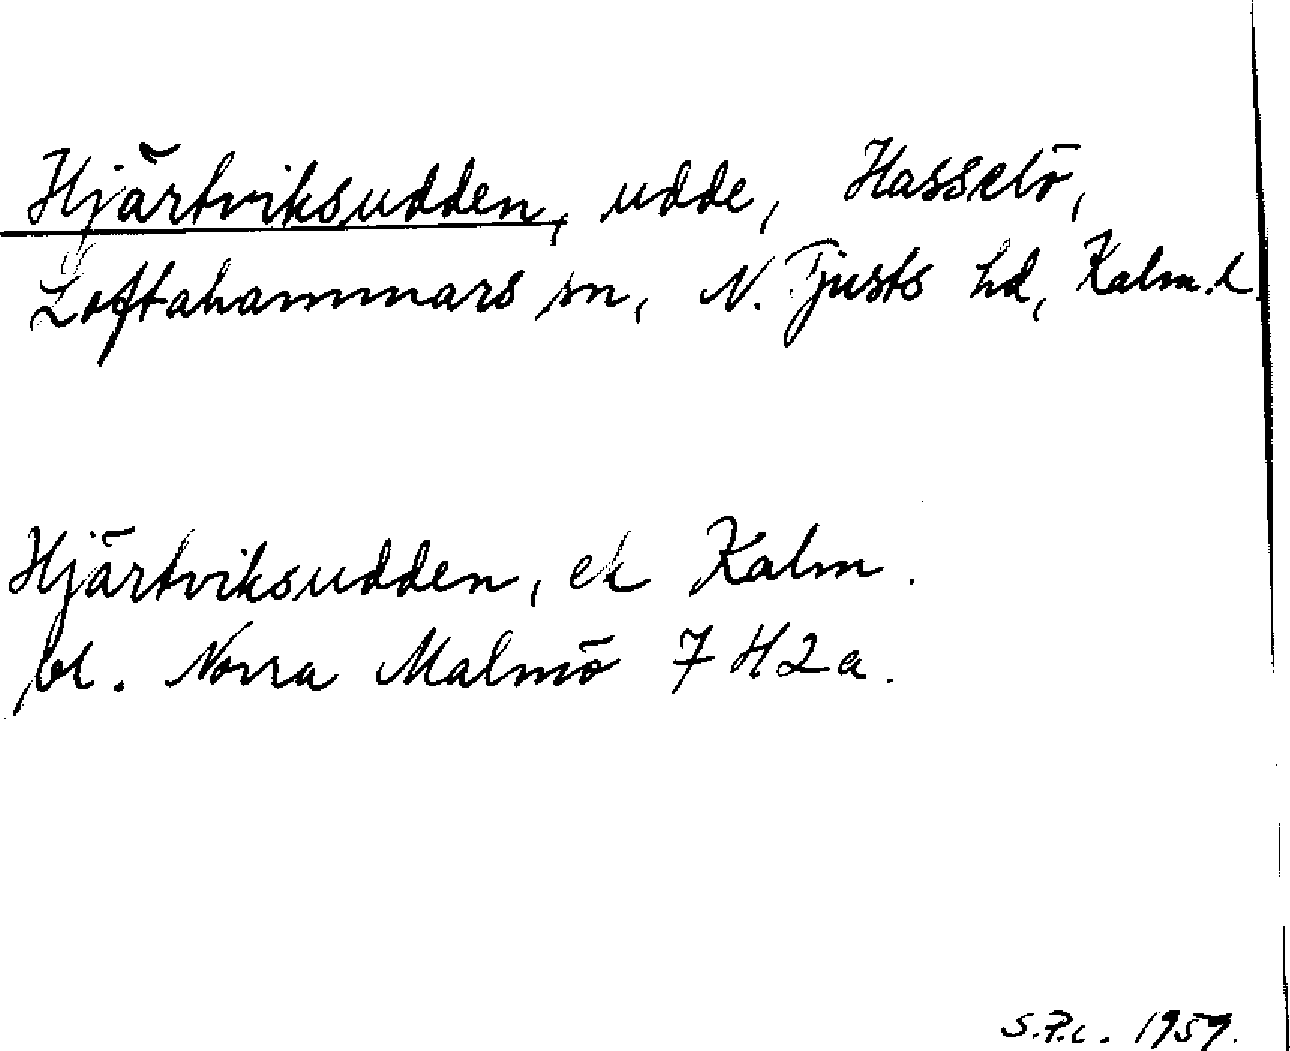 Hjärtviksudden, udde, Hasselö,
Loftahammars sn, N. Tjusts hd, Kalm. l.
Hjärtviksudden, ek Kalm.
bl. Norra Malmö 7 H 2 a.
1959.